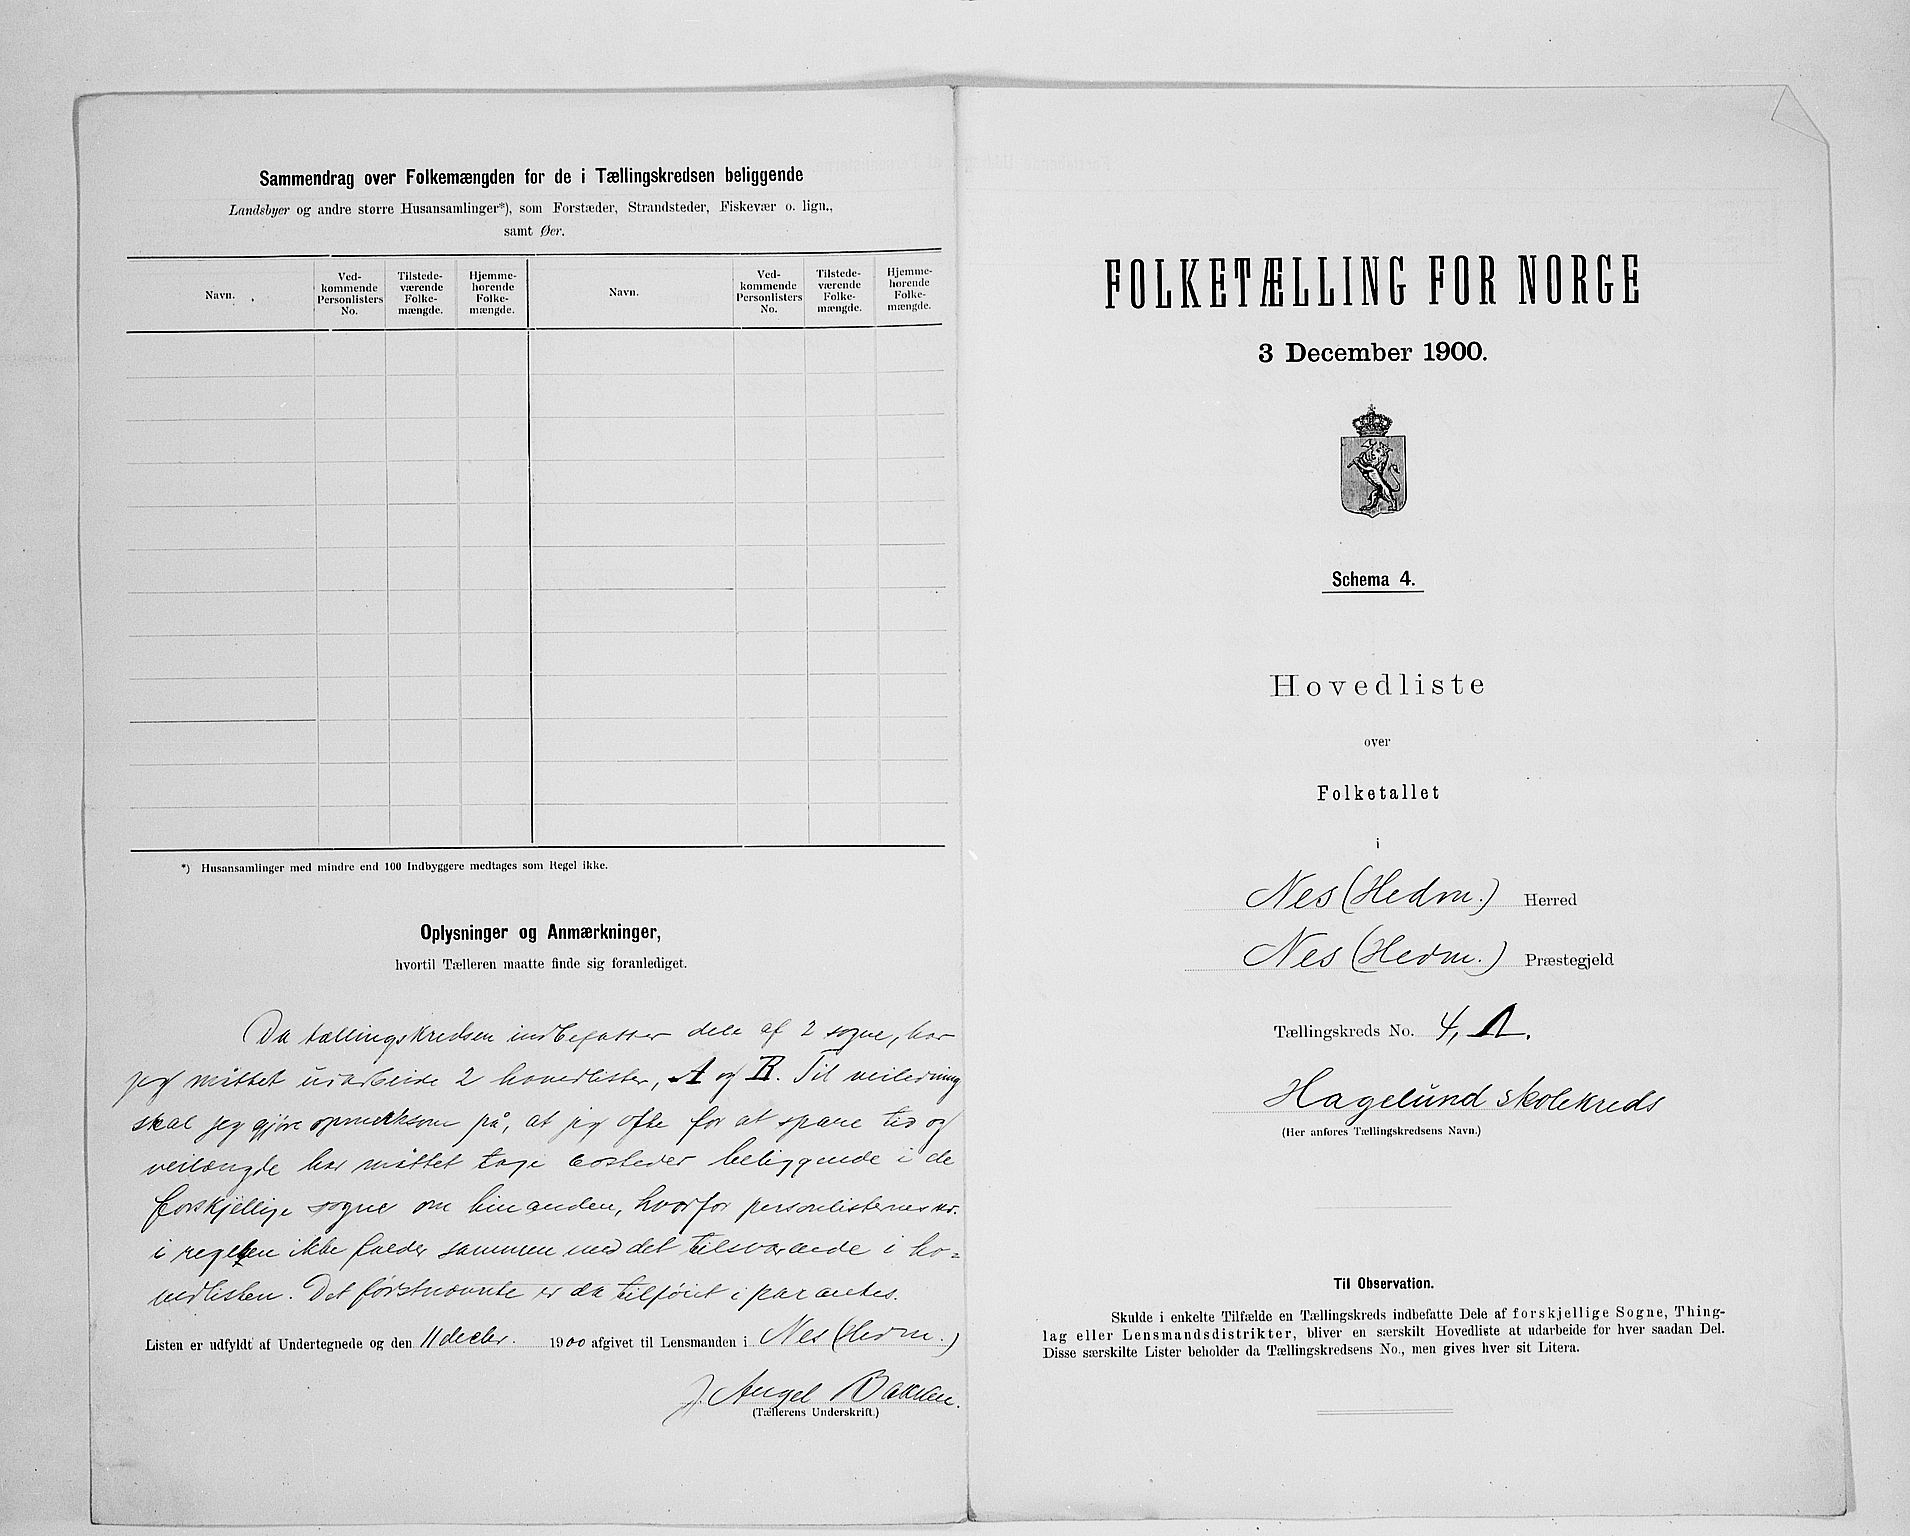 Sammendrag over Folkemængden for de i Tællingskredsen beliggende
Landsbyer og andre større Husansamlinger*), som Forstæder, Strandsteder, Fiskevær o. lign.,
samt Øer.
Navn.
Ved-
kommende
Personlisters
No.
Tilstede-
værende
Folke-
mængde.
Hjemme-
hørende
Folke-
mængde.
Navn.
Ved-
kommende
Personlisters
No.
Tilstede-
værende
Folke-
mængde.
Hjemme-
hørende
Folke-
mængde.
*) Husansamlinger med mindre end 100 Indbyggere medtages som Regel ikke.
Oplysninger og Anmærkninger,
hvortil Tælleren maatte finde sig foranlediget.
Da tællingskredsen indbefatter dele af 2 sogne, har
jeg måttet udarbeide 2 hovedlister, A og B. Til veiledning
skal jeg gjøre opmerksom på, at jeg ofte for at spare tid og
veilængde har måttet tage bosteder beliggende i de
forskjellige sogne om hinanden, hvorfor personlisternes nr.
i regelen ikke falder sammen med det tilsvarende i ho-
vedlisten. Det førstnævnte er da tilføiet i parantes.
Listen er udfyldt af Undertegnede og den 11 decbr. 1900 afgivet til Lensmanden i Nes (Hedm.)
J. Angel Bakken.
(Tællerens Underskrift.)
FOLKETÆLLING FOR NORGE
3 December 1900.
Schema 4.
Hovedliste
over
Folketallet
i
Nes (Hedm.) Herred
Nes (Hedm.) Præstegjeld
Tællingskreds No. 4, A.
Hagelund skolekreds
(Her anføres Tællingskredsens Navn.)
Til Observation.
Skulde i enkelte Tilfælde en Tællingskreds indbefatte Dele af forskjellige Sogne, Thing-
lag eller Lensmandsdistrikter, bliver en særskilt Hovedliste at udarbeide for hver saadan Del.
Disse særskilte Lister beholder da Tællingskredsens No., men gives hver sit Litera.